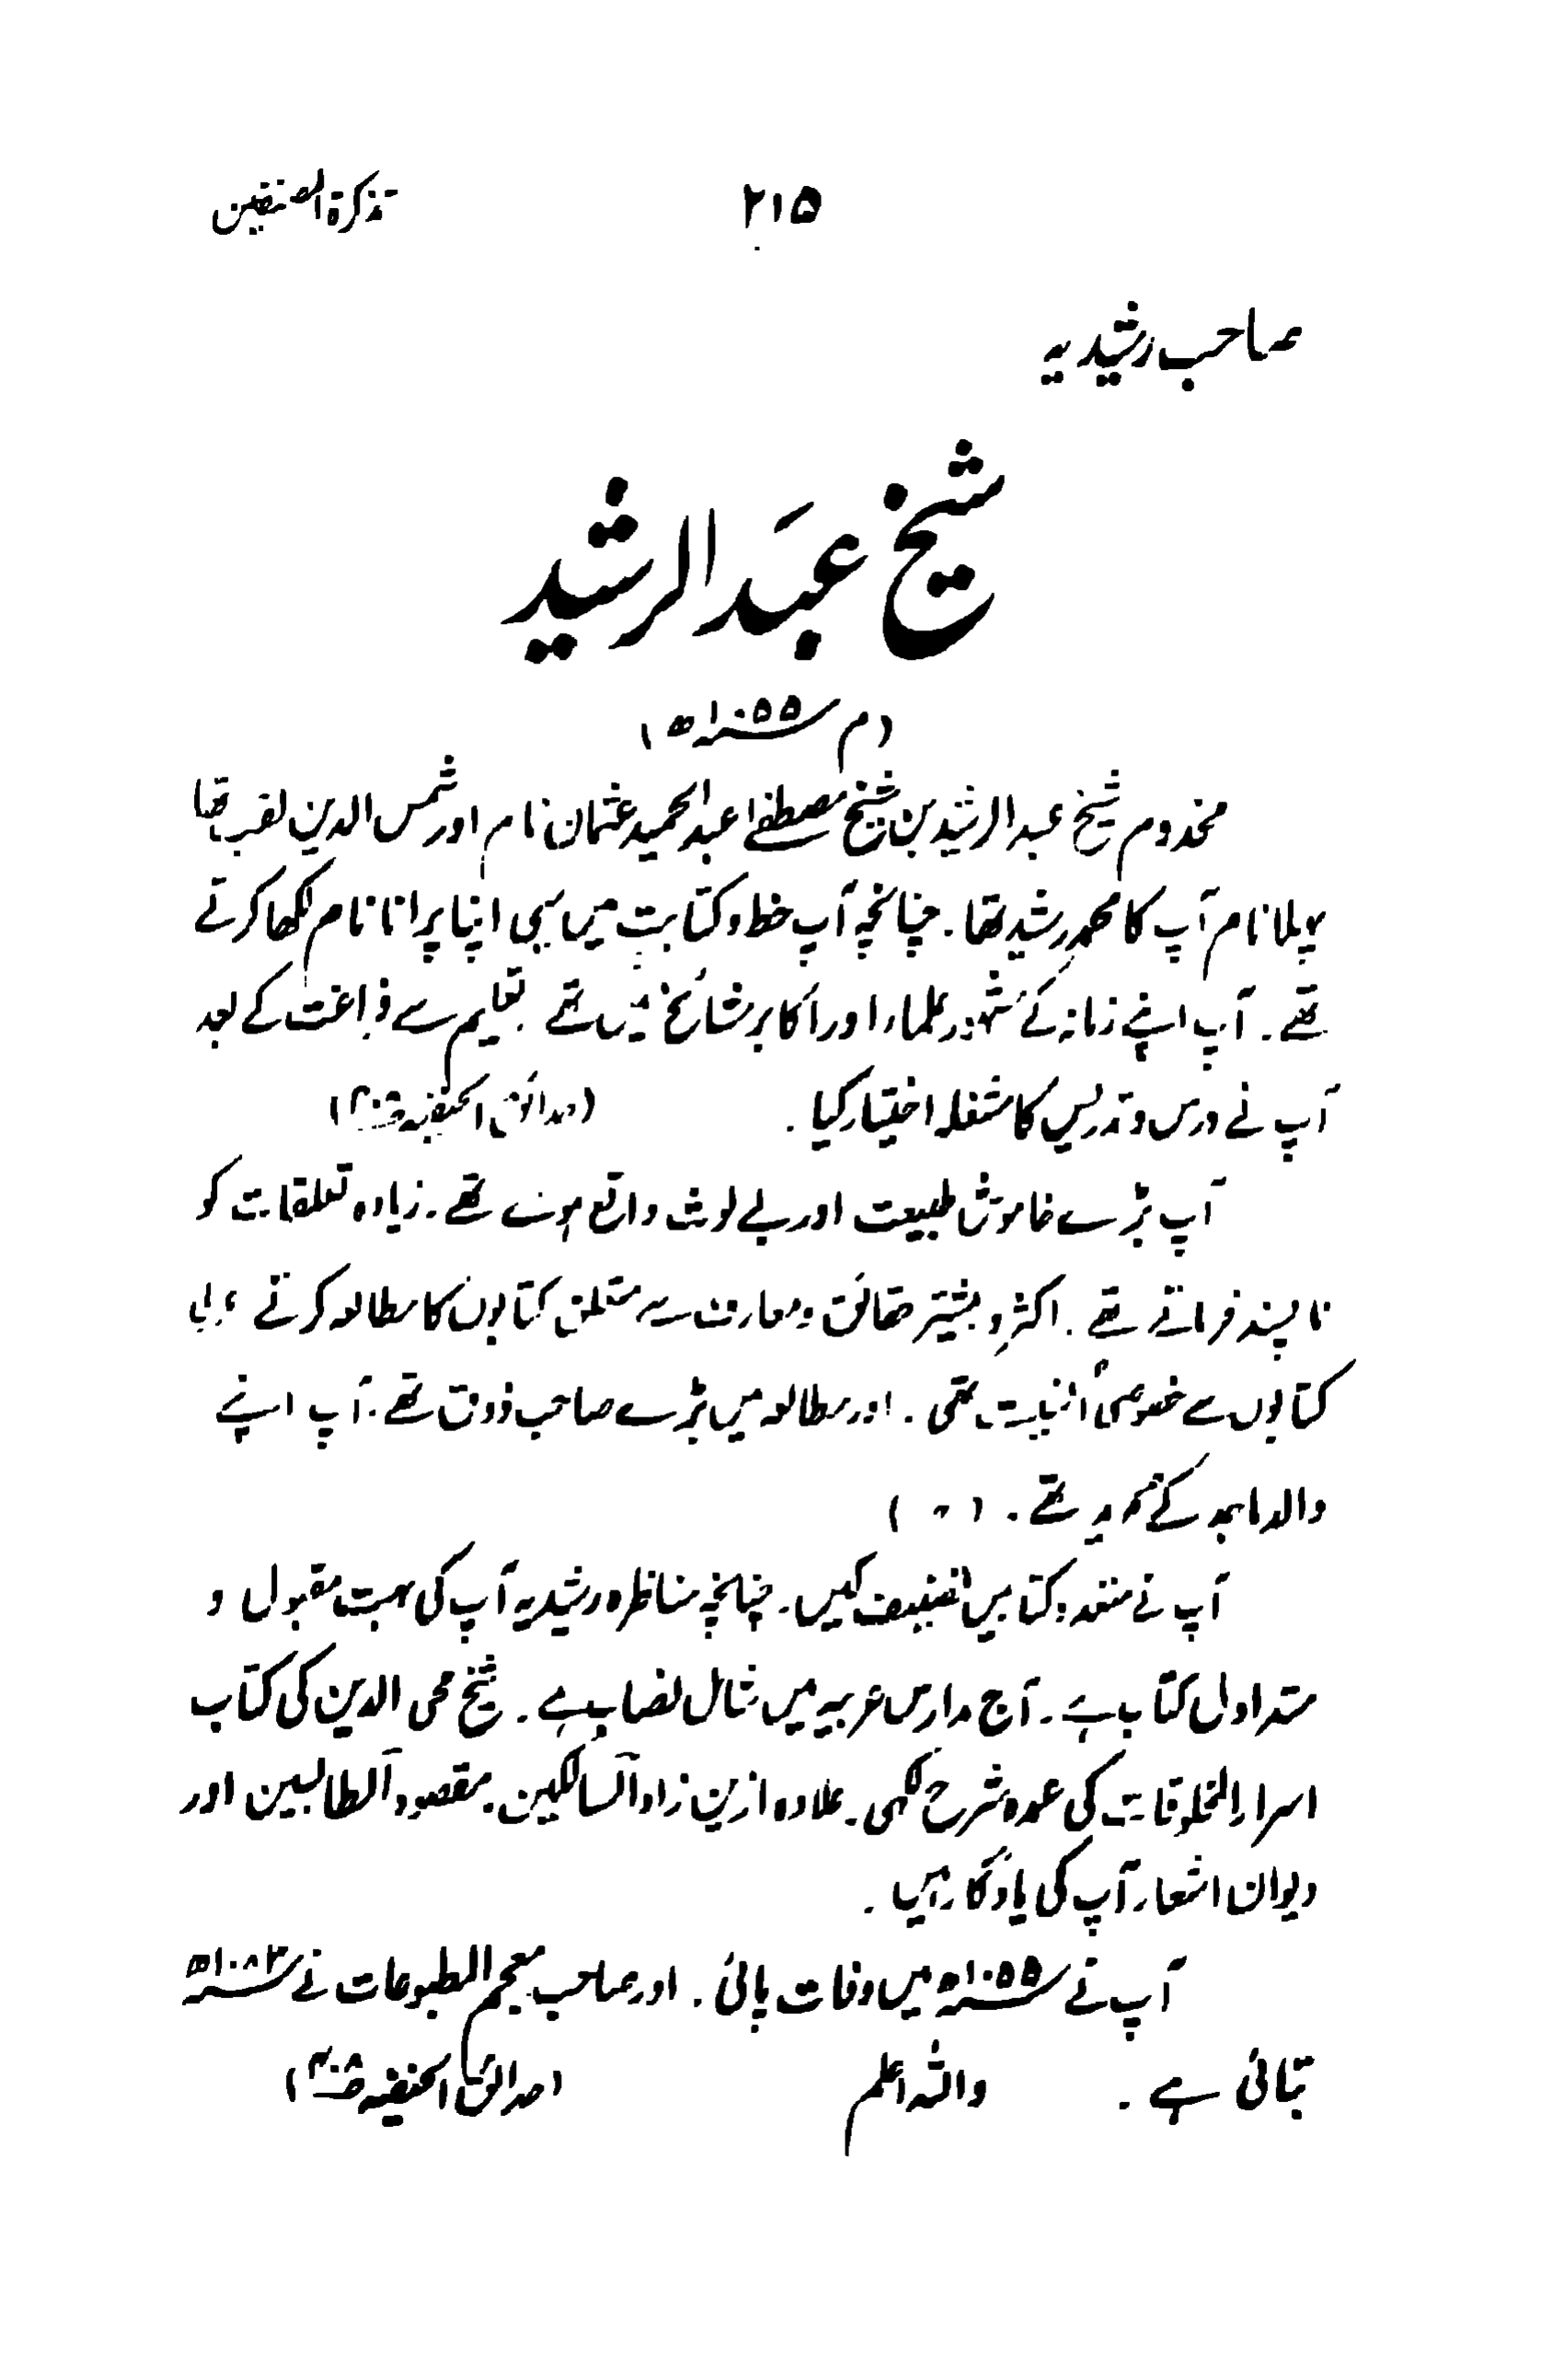 تذکرۃ المصنفین
۲۱۵
صاحب رشیدیہ
شیخ عبد الرشید
(م ۱۰۵۵ھ)
مخدوم شیخ عبد الرشید بن شیخ مصطفٰے عبد الحمید عثمان نام اور شمس الدین لقب تھا
پہلا نام آپ کا محمد رشید تھا۔ چنانچہ آپ خط و کتابت میں یہی اپنا پرانا نام لکھا کرتے
تھے۔ آپ اپنے زمانہ کے مشہور علماء اور اکابر مشائخ میں تھے تعلیم سے فراغت کے بعد
آپ نے درس و تدریس کا مشغلہ اختیار کیا۔ (حدائق الحنفیہ
آپ بڑے خاموش طبیعت اور بے لوث واقع ہوئے تھے۔ زیادہ تعلقات کو
نا پسند فرماتے تھے۔ اکثر و بیشتر حقائق و معارف سے متعلق کتابوں کا مطالعہ کرتے عربی
کتابوں سے خصوصی تھی۔ اور مطالعہ میں بڑے صاحب ذوق تھے۔ آپ اپنے
والد ماجد کے مرید تھے۔ ( ״ )
آپ نے متعدد کتابیں تصنیف کیں۔ چنانچہ مناظرہ رشیدیہ آپ کی بہت مقبول و
متداول کتاب ہے۔ آج مدارس عربیہ میں شامل نصاب ہے۔ شیخ محی الدین کی کتاب
اسرار المخلوقات کی عمدہ شرح لکھی۔ علاوہ ازین زاد السالکین۔ مقصود الطالبین اور
دیوان اشعار آپ کی یادگار ہیں۔
آپ نے ۱۰۵۵ھ میں وفات پائی۔ اور صاحب معجم المطبوعات نے ۱۰۸۳ھ
بتائی ہے۔ واللہ اعلم (حدائق الحنفیہ